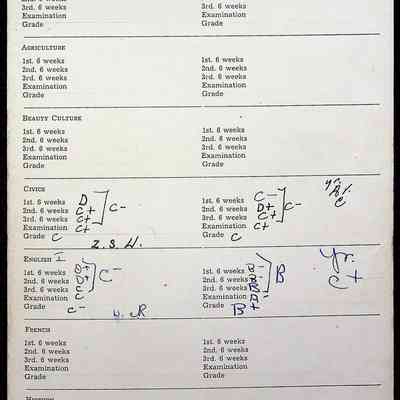 3rd. 6 weeks 3rd. 6 weeks
Examination Examination
Grade Grade
AGRICULTURE
1st. 6 weeks 1st. 6 weeks
2nd. 6 weeks 2nd. 6 weeks
3rd. 6 weeks 3rd. 6 weeks
Examination Examination
Grade Grade
BEAUTY CULTURE
1st. 6 weeks 1st. 6 weeks
2nd. 6 weeks 2nd. 6 weeks
3rd. 6 weeks 3rd. 6 weeks
Examination Examination
Grade Grade
CIVICS yr.
1st. 6 weeks D 1st. 6 weeks C-
2nd. 6 weeks C+ C- 2nd. 6 weeks D+ C- C
3rd. 6 weeks C+ 3rd. 6 weeks C+
Examination C+ Examination C+
Grade C Grade C
Z. S. W.
ENGLISH I Yr.
1st. 6 weeks 1st. 6 weeks B-
2nd. 6 weeks C- 2nd. 6 weeks B C+
3rd. 6 weeks C 3rd. 6 weeks
Examination C Examination
Grade C- Grade B+
FRENCH
1st. 6 weeks 1st. 6 weeks
2nd. 6 weeks 2nd. 6 weeks
3rd. 6 weeks 3rd. 6 weeks
Examination Examination
Grade Grade